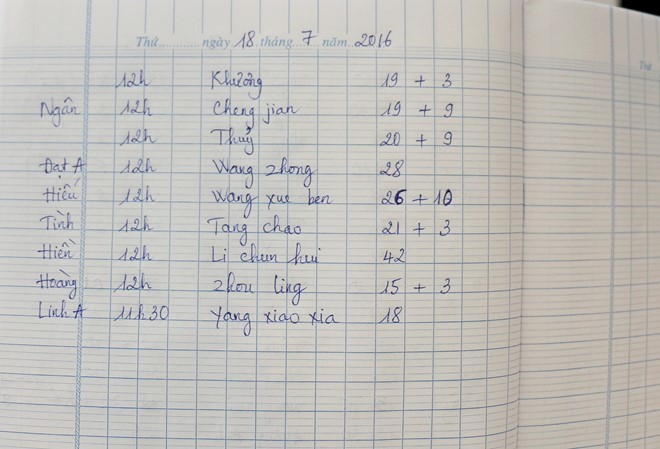 Thứ............ngày 18 tháng...7...năm...2016
12h Khưởng 19 + 3
Ngân 12h Cheng jian 19 + 9
12h Thuỷ 20 + 9
Đạt A 12h Wang zhong 28
Hiếu 12h Wang xue ben 26 + 10
Tình 12h Tang chao 21 + 3
Hiền 12h Li chun hui 42
Hoàng 12h zhou ling 15 + 3
Linh A 11h30 Yang xiao xia 18
Thứ